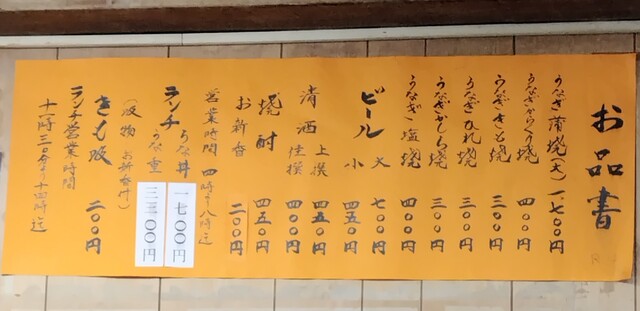 お品書
うなぎ蒲焼(大) 一、七〇〇円
うなぎからくり焼 四〇〇円
うなぎきも焼 三〇〇円
うなぎひれ焼 三〇〇円
うなぎかしら焼 三〇〇円
うなぎ塩焼 四〇〇円
ビール 大 七〇〇円
小 四五〇円
清酒 上撰 四五〇円
佳撰 四〇〇円
焼酎 四五〇円
お新香 二〇〇円
営業時間 四時より八時迄
ランチ うな丼 一、七〇〇円
うな重 二、三〇〇円
(吸物 お新香付)
きも吸 二〇〇円
ランチ営業時間
十一時三〇分より十四時迄